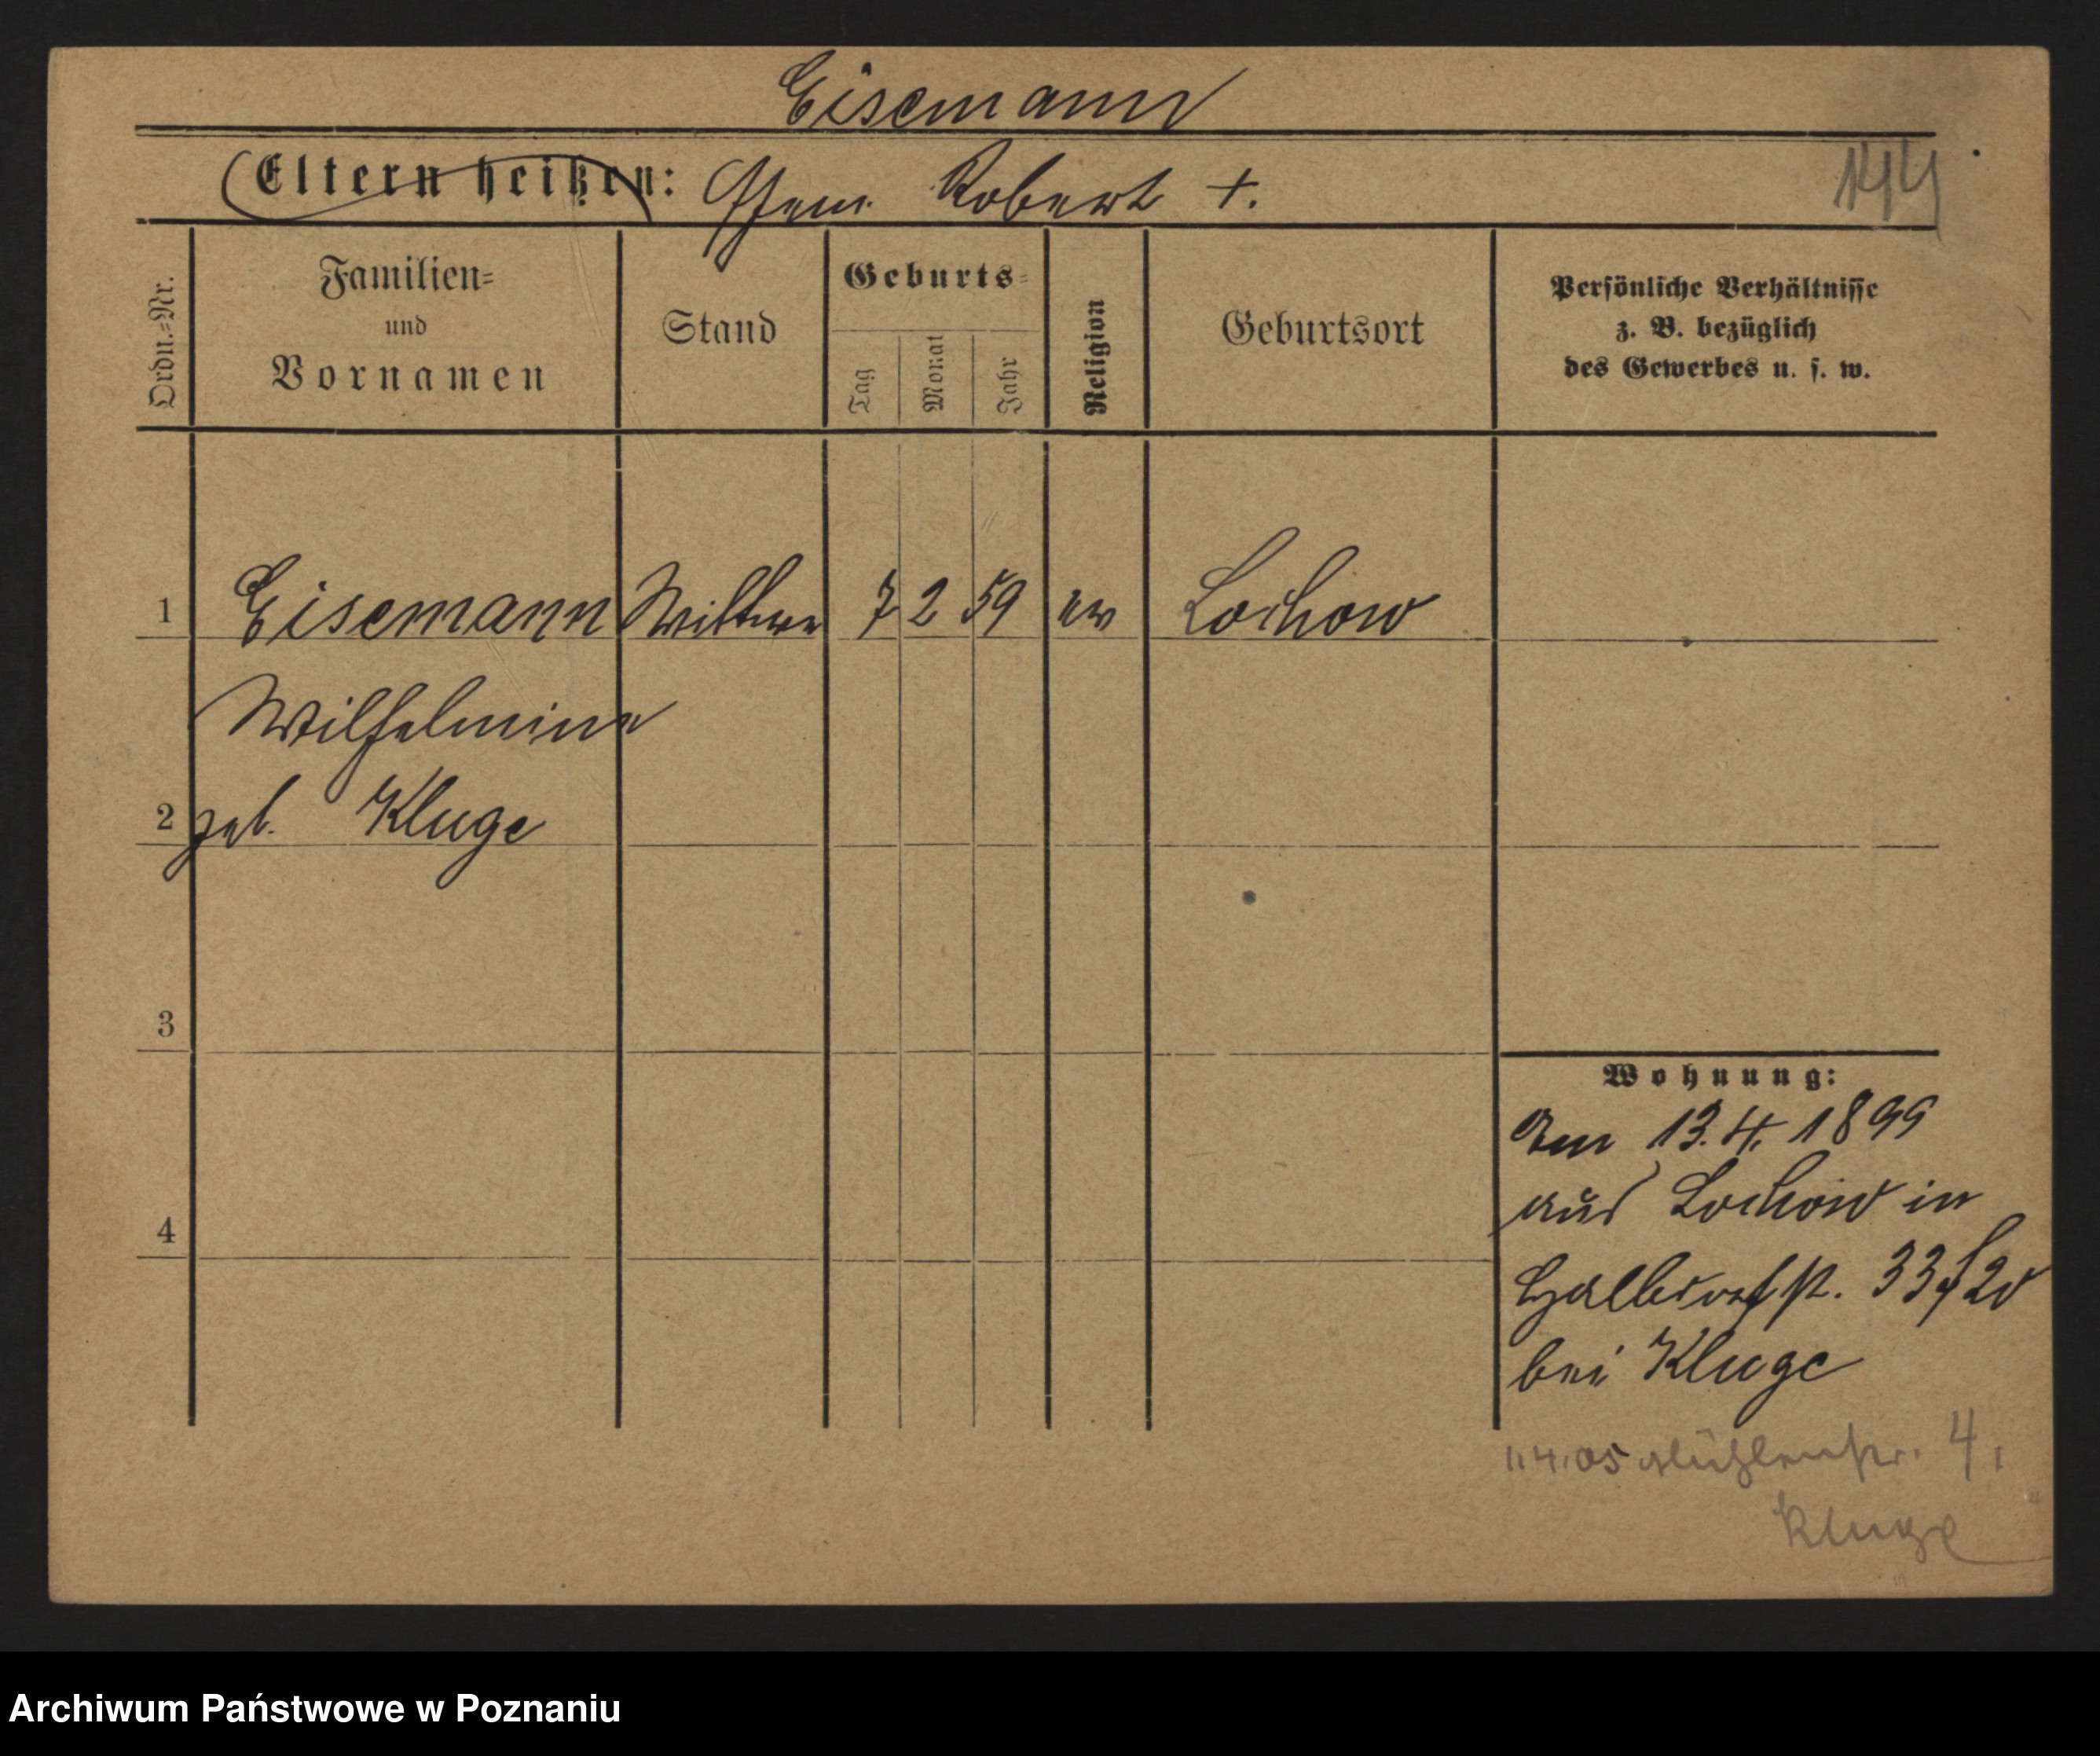 Eisemann
Eltern heißen: Ehem. Robert +.
144
Ordn.-Nr.
Familien-
und
Vornamen
Stand
Geburts-
Tag
Monat
Jahr
Religion
Geburtsort
Persönliche Verhältnisse
z. B. bezüglich
des Gewerbes u. s. w.
1 Eisemann Wittwe 7 2 59 ev Lochow
Wilhelmine
2 geb. Kluge
3
4
Wohnung:
Am 13.4. 1899
aus Lochow in
Halbdorfst. 33
bei Kluge
1.4.05 Mühlenstr. 4,
Kluge
Archiwum Państwowe w Poznaniu